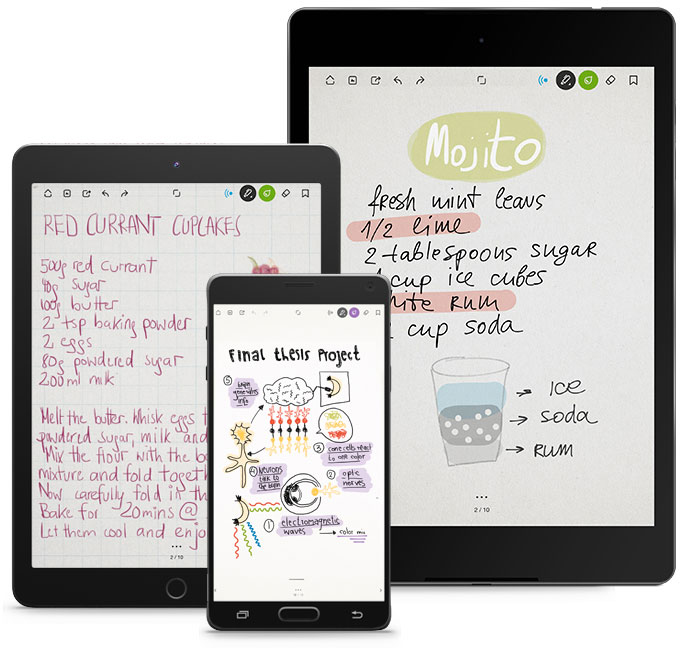 RED CURRANT CUPCAKES
500g red currant
40g sugar
100g butter
2 tsp baking powder
2 eggs
80g powdered sugar
200 ml milk
Melt the butter. Whisk eggs
powdered sugar, milk and
Mix the flour with the
mixture and fold
Now carefully fold in
Bake for 20mins @
Let them cool and
2 / 10
Final thesis Project
5 brain
generates
info
3 cone cells react
to one color
4 Neurons
talk to
the brain
2 optic
nerves
1 electromagnetic
waves → color mix
Mojito
fresh mint leavs
1/2 lime
2 tablespoons sugar
cup ice cubes
Rum
cup soda
→ ICE
→ SODA
→ RUM
2 / 10